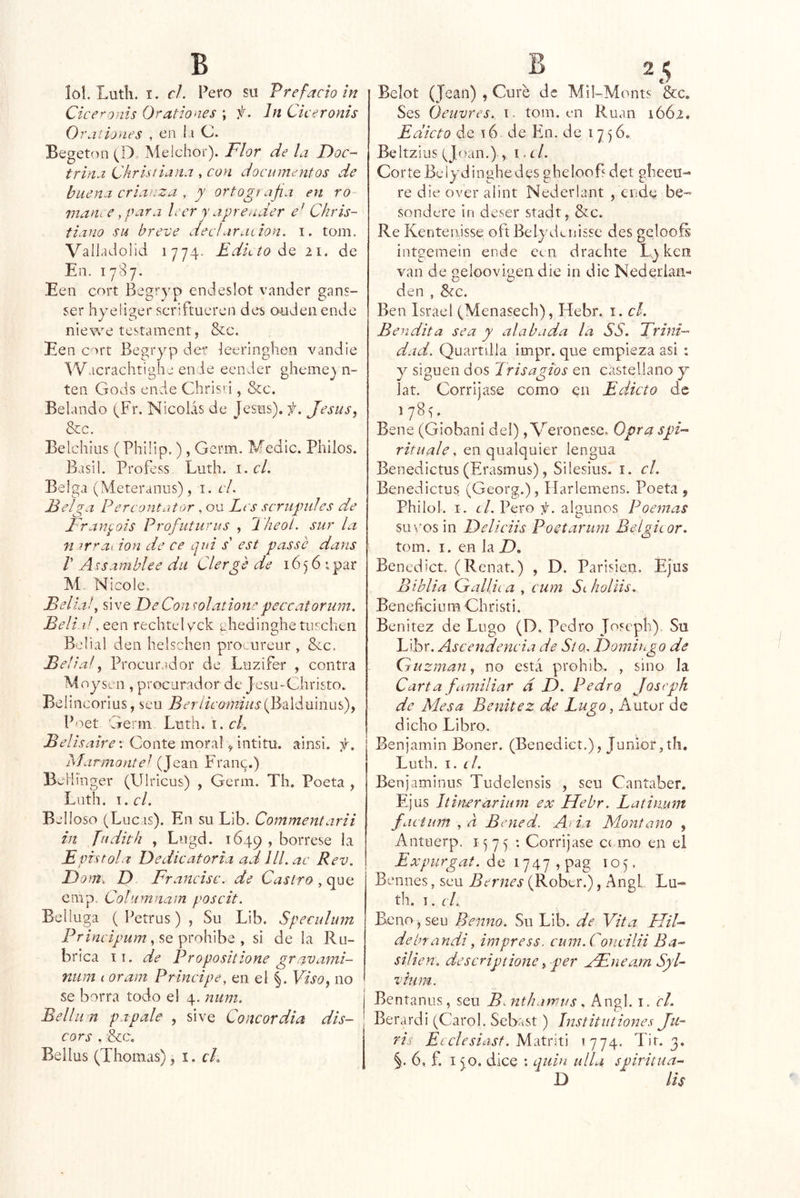 B
lol. Luth. 1. cl. Pero su Prefacio in
Ciceronis Orationes ; ℣. In Ciceronis
Orationes , en la C.
Begeton (D. Melchor). Flor de la Doc-
trina Christiana , con documentos de
buena crianza , y ortografia en ro-
mance , para leer y aprender el Chris-
tiano su breve declaracion. 1. tom.
Valladolid 1774. Edicto de 21. de
En. 1787.
Een cort Begryp endeslot vander gans-
ser hyeliger scriftueren des ouden ende
niewe testament, &c.
Een cort Begryp der leeringhen vandie
Wacrachtighe ende eender ghemeyn-
ten Gods ende Christi , &c.
Belando (Fr. Nicolás de Jesus). ℣. Jesus,
&c.
Belchius (Philip.) , Germ. Medic. Philos.
Basil. Profess Luth. 1. cl.
Belga (Meteranus) , 1. cl.
Belga Percontator , ou Les scrupules de
François Profuturus , Theol. sur la
narration de ce qui s' est passè dans
l' Assamblee du Clergè de 1656 : par
M. Nicole.
Belial, sive De Consolatione peccatorum.
Belial, een rechtelyck ghedinghe tuschen
Belial den helschen procureur , &c.
Belial, Procurador de Luzifer , contra
Moysen , procurador de Jesu-Christo.
Belincorius, seu Berlicomius (Balduinus),
Poet Germ. Luth. 1. cl.
Belisaire : Conte moral , intitu. ainsi. ℣.
Marmontel (Jean Franç.)
Bellinger (Ulricus) , Germ. Th. Poeta ,
Luth. 1. cl.
Belloso (Lucas). En su Lib. Commentarii
in Judith , Lugd. 1649 , borrese la
Epistola Dedicatoria ad Ill. ac Rev.
Dom. D Francisc. de Castro , que
emp. Columnam poscit.
Belluga (Petrus) , Su Lib. Speculum
Principum , se prohibe , si de la Ru-
brica 11. de Propositione gravami-
num coram Principe, en el §. Viso, no
se borra todo el 4. num.
Bellum papale , sive Concordia dis-
cors , &c.
Bellus (Thomas) , 1. cl.
B 25
Belot (Jean) , Curè de Mil-Monts &c.
Ses Oeuvres. 1. tom. en Ruan 1662.
Edicto de 16 de En. de 1756.
Beltzius (Joan.) , 1. cl.
Corte Belydinghedes gheloofs det gheeu-
re die over alint Nederlant , ende be-
sondere in deser stadt, &c.
Re Kentenisse oft Belydenisse des geloofs
intgemein ende een drachte Lyken
van de geloovigen die in die Nederlan-
den , &c.
Ben Israel (Menasech), Hebr. 1. cl.
Bendita sea y alabada la SS. Trini-
dad. Quartilla impr. que empieza asi :
y siguen dos Trisagios en castellano y
lat. Corrijase como en Edicto de
1785.
Bene (Giobani del) , Veronese. Opra spi-
rituale, en qualquier lengua
Benedictus (Erasmus), Silesius. 1. cl.
Benedictus (Georg.), Harlemens. Poeta ,
Philol. 1. cl. Pero ℣. algunos Poemas
suyos in Deliciis Poetarum Belgicor.
tom. 1. en la D.
Benedict. (Renat.) , D. Parisien. Ejus
Biblia Gallica , cum Scholiis.
Beneficium Christi.
Benitez de Lugo (D. Pedro Joseph). Su
Libr. Ascendencia de Sto. Domingo de
Guzman, no está prohib. , sino la
Carta familiar á D. Pedro Joseph
de Mesa Benitez de Lugo, Autor de
dicho Libro.
Benjamin Boner. (Benedict.), Junior, th.
Luth. 1. cl.
Benjaminus Tudelensis , seu Cantaber.
Ejus Itinerarium ex Hebr. Latinum
factum , à Bened. Aria Montano ,
Antuerp. 1575 : Corrijase como en el
Expurgat. de 1747 , pag 105.
Bennes, seu Bernes (Rober.) , Angl. Lu-
th. 1. cl.
Beno, seu Benno. Su Lib. de Vita Hil-
debrandi, impress. cum. Concilii Ba-
silien. descriptione, per Æneam Syl-
vium.
Bentanus, seu Benthamus. Angl. 1. cl.
Berardi (Carol. Sebast ) Institutiones Ju-
ris Ecclesiast. Matriti 1774. Tit. 3.
§. 6, f. 150. dice : quin ulla spiritua-
D lis